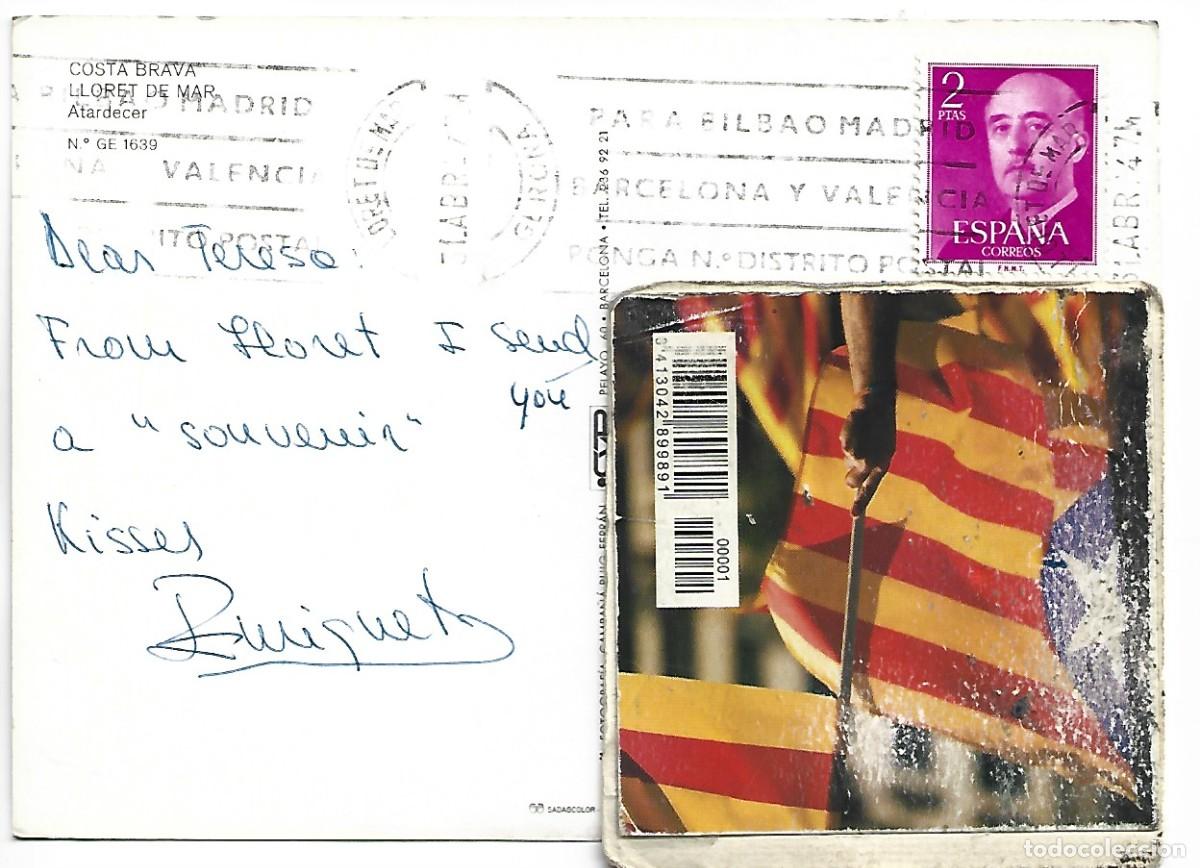 COSTA BRAVA
LLORET DE MAR
Atardecer
N.º GE 1639
MADRID
VALENCIA
LLORET DE MAR
31 ABR. 74
GERONA
PARA BILBAO MADRID
BARCELONA Y VALENCIA
PONGA N.º DISTRITO POSTAL
2
PTAS
ESPAÑA
CORREOS
F.N.M.T.
31 ABR. 74
Dear Teresa:
From Lloret I send
you
a "souvenir"
Kisses
Enriqueta
PELAYO, 60 • BARCELONA • TEL. 236 92 21
FOTOGRAFÍA CAMPAÑÁ PUIG FERRÁN
SADAGCOLOR
8 413042 899891
00001
todocoleccion